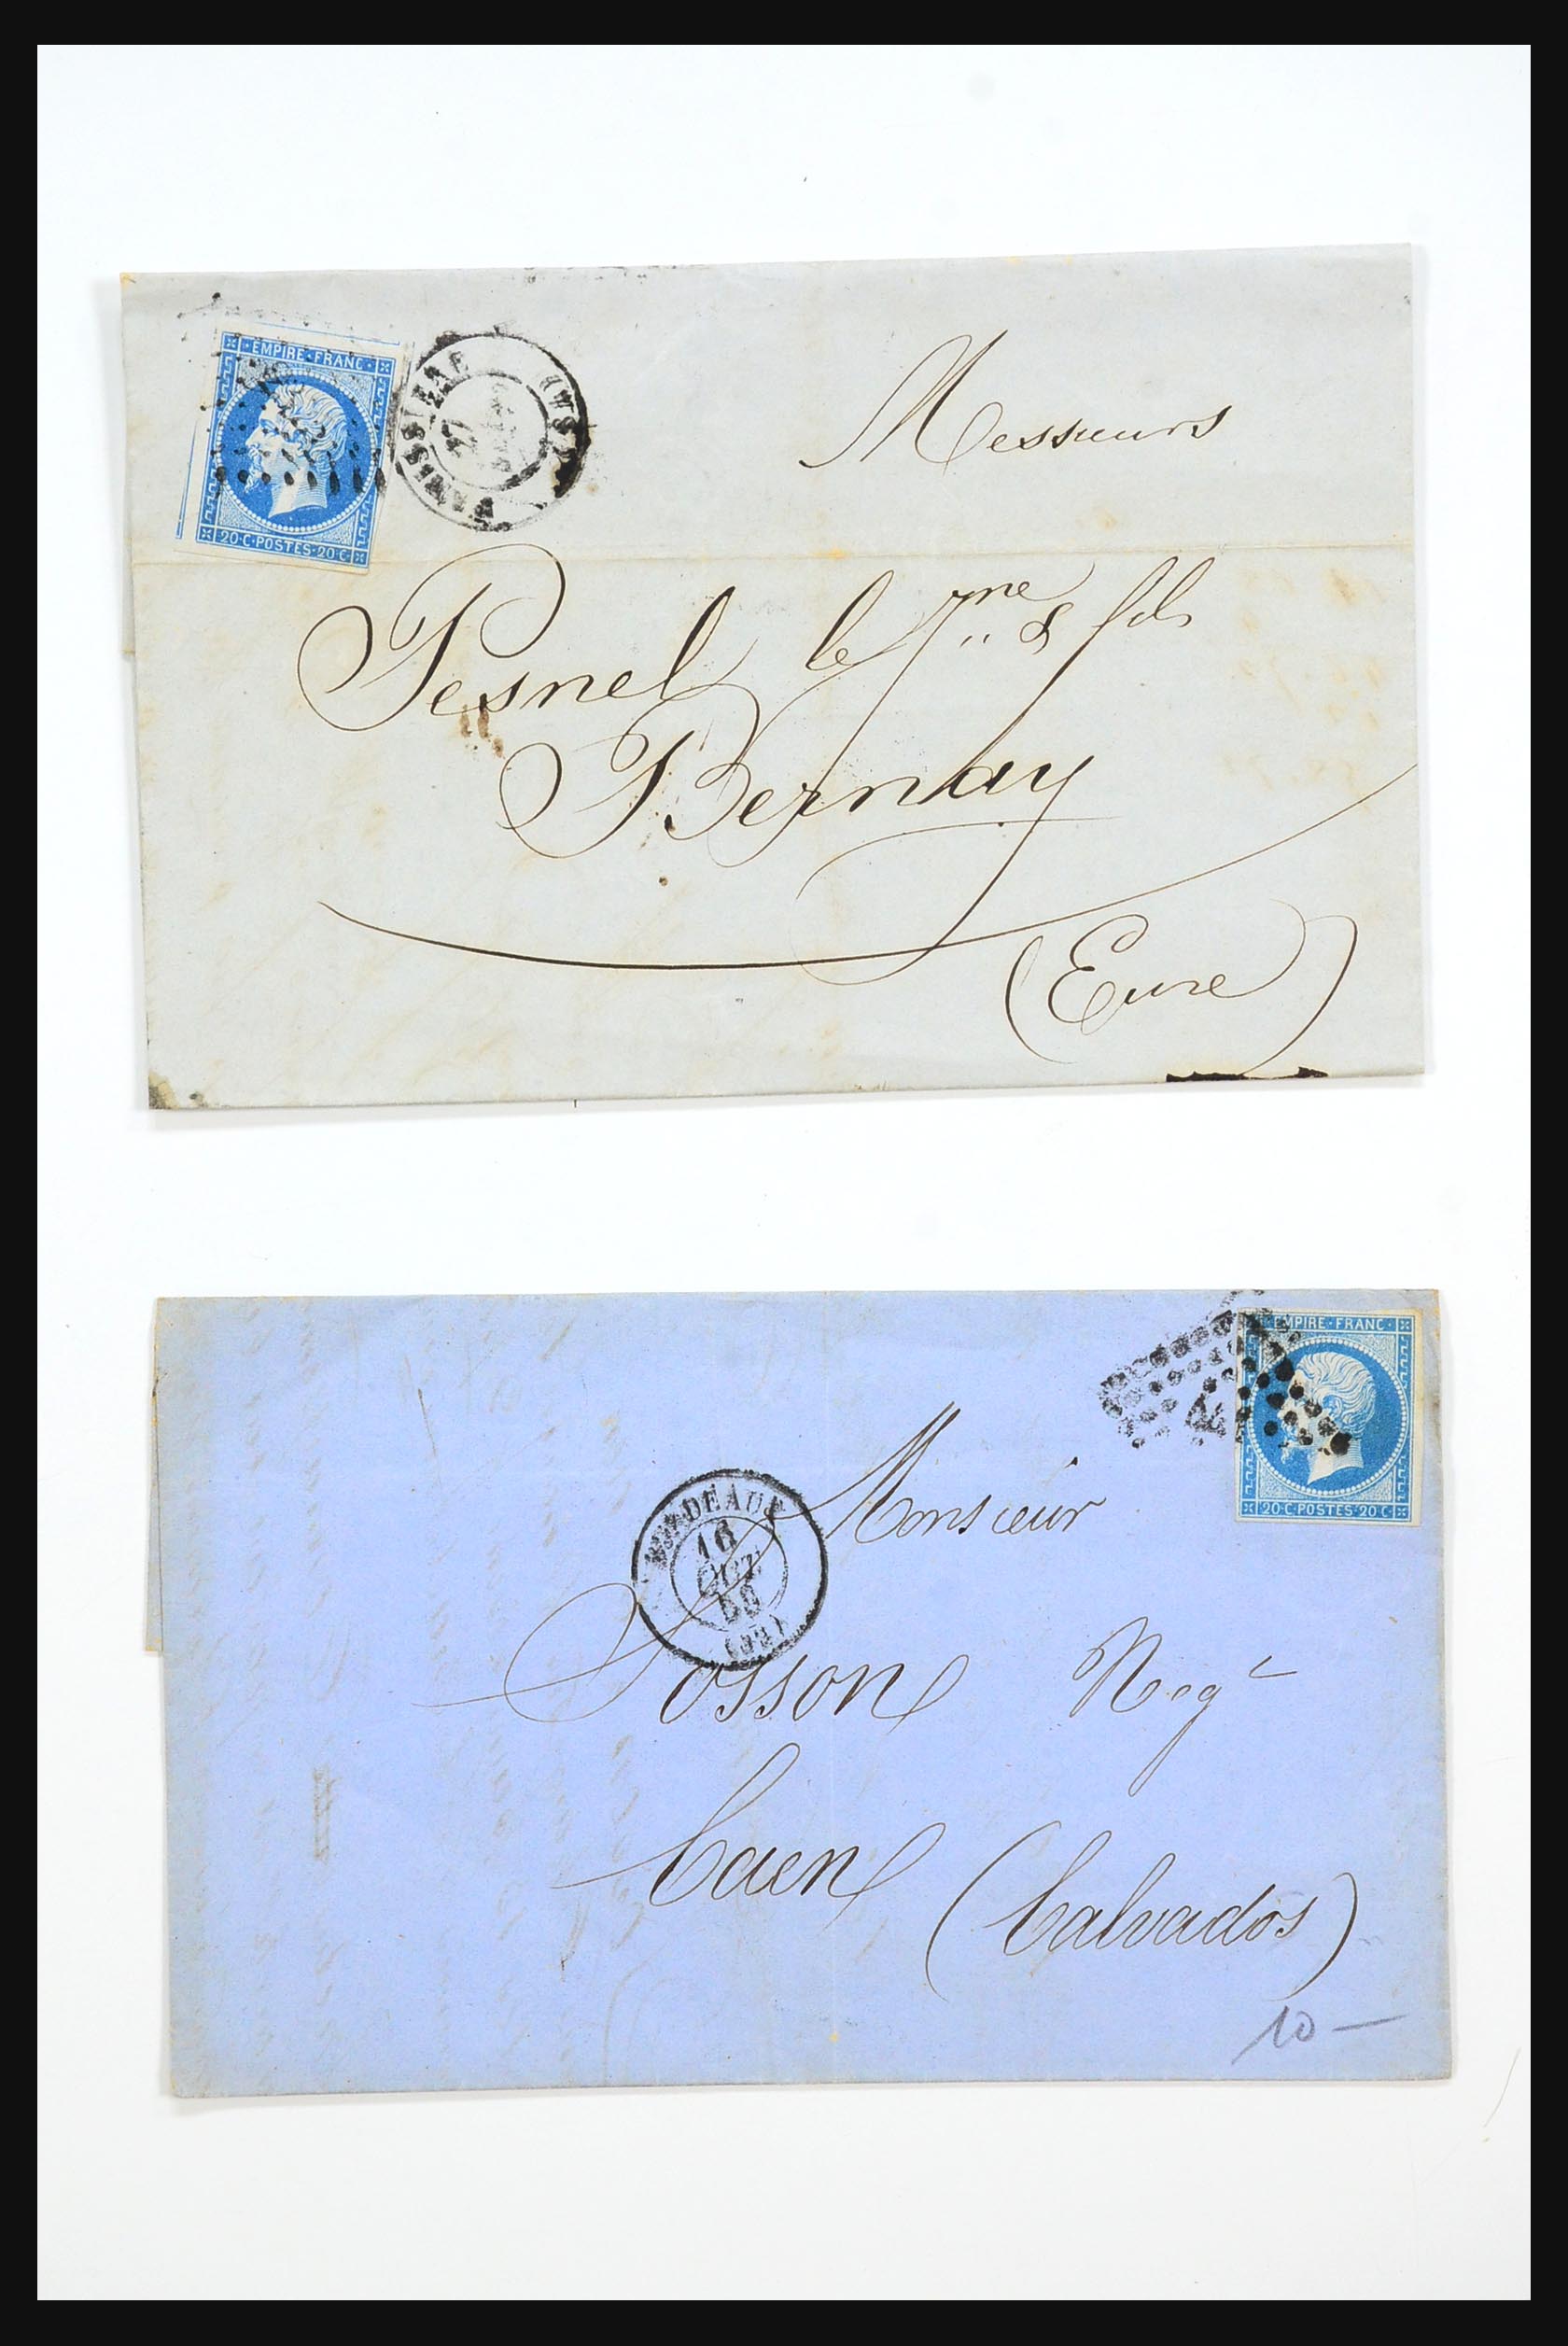 EMPIRE·FRANC·
20·C·POSTES·20·C·
Messieurs
Pesnel le & fils
Bernay
(Eure)
EMPIRE·FRANC·
20·C·POSTES·20·C·
BORDEAUX
16
OCT
(32)
Monsieur
Sosson Negt
Caen (Calvados)
10 —